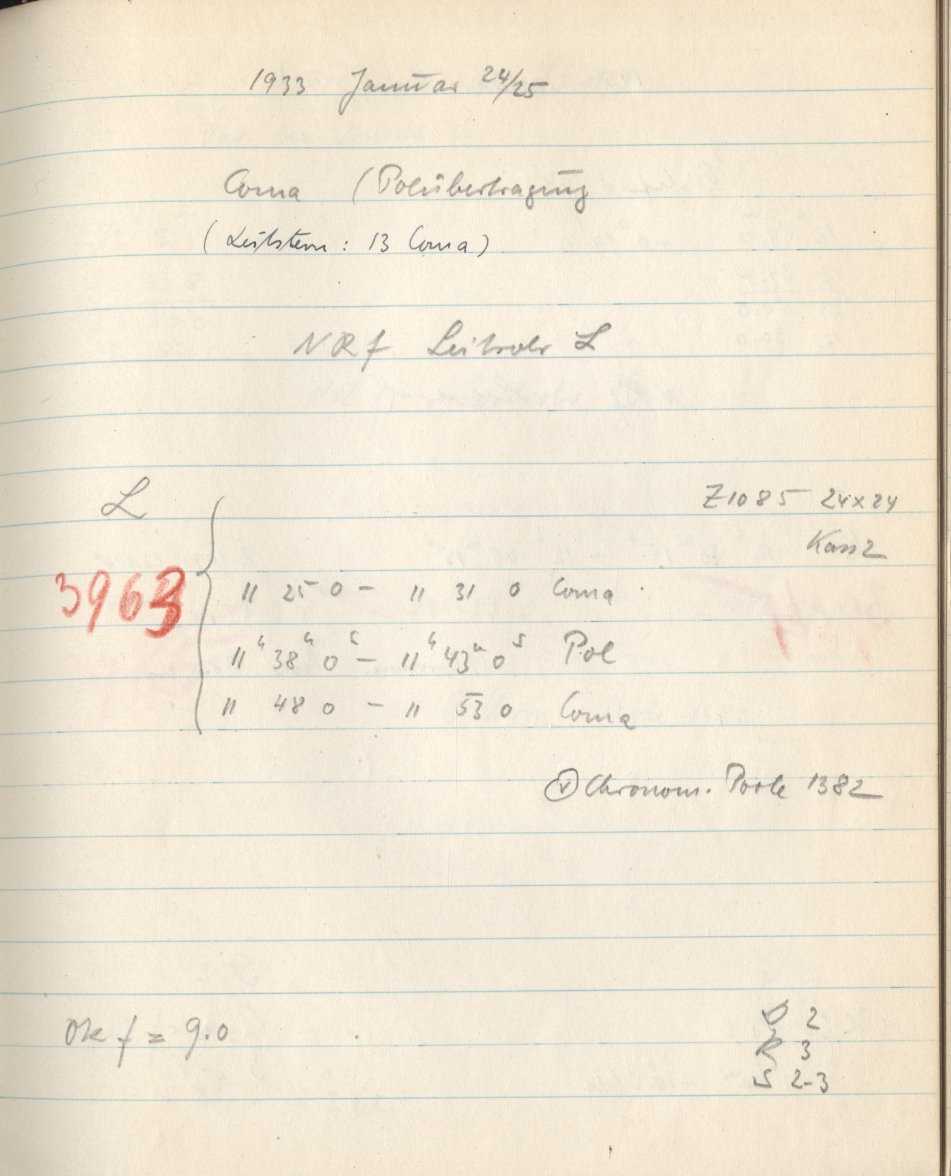 1933 Januar 24/25
Coma (Polübertragung
(Leitstern: 13 Coma)
NRf Leitrohr L
L
Z1085 24x24
Kass 2
3963
11 25 0 – 11 31 0 Coma
11h 38m 0s – 11h 43m 0s Pol
11 48 0 – 11 53 0 Coma
Chronom. Poole 1382
Ok f = 9.0
2
R 3
S 2-3